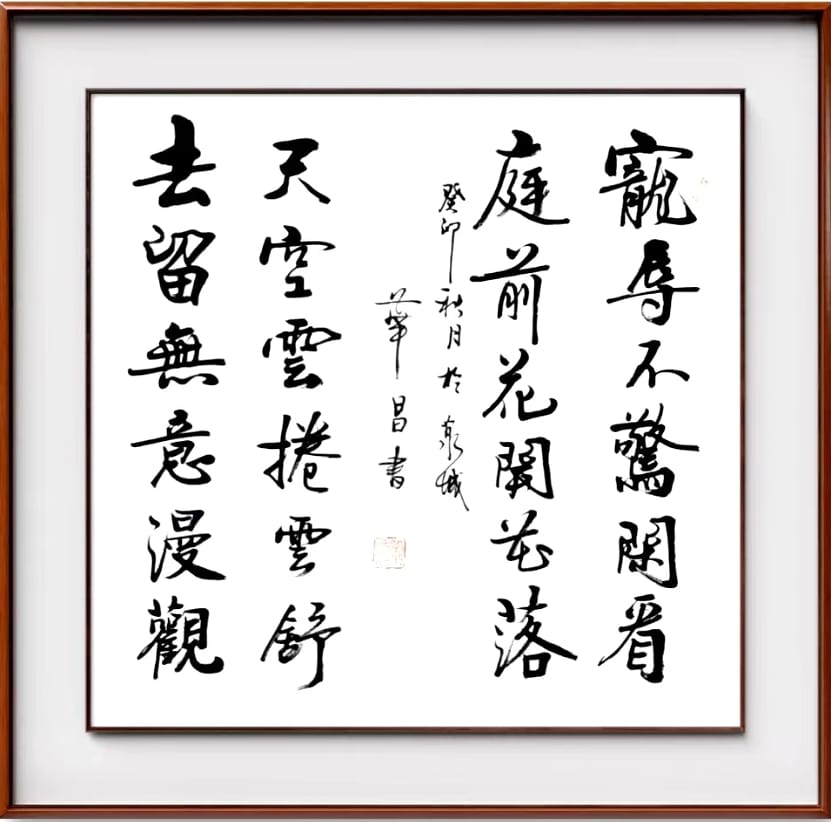 寵辱不驚閑看
庭前花開花落
癸卯秋月於泉城
華昌書
天空雲捲雲舒
去留無意漫觀